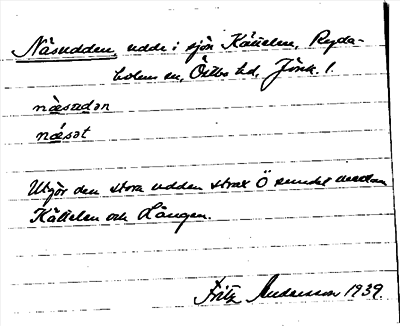 Näsudden, udde i sjön Källelen, Ryda-
holms sn, Östbo hd, Jönk. l.
næsudən
næsət
Utgör den stora udden strax Ö sundet mellan
Källelen och Lången.
Fritz Andersson 1939.